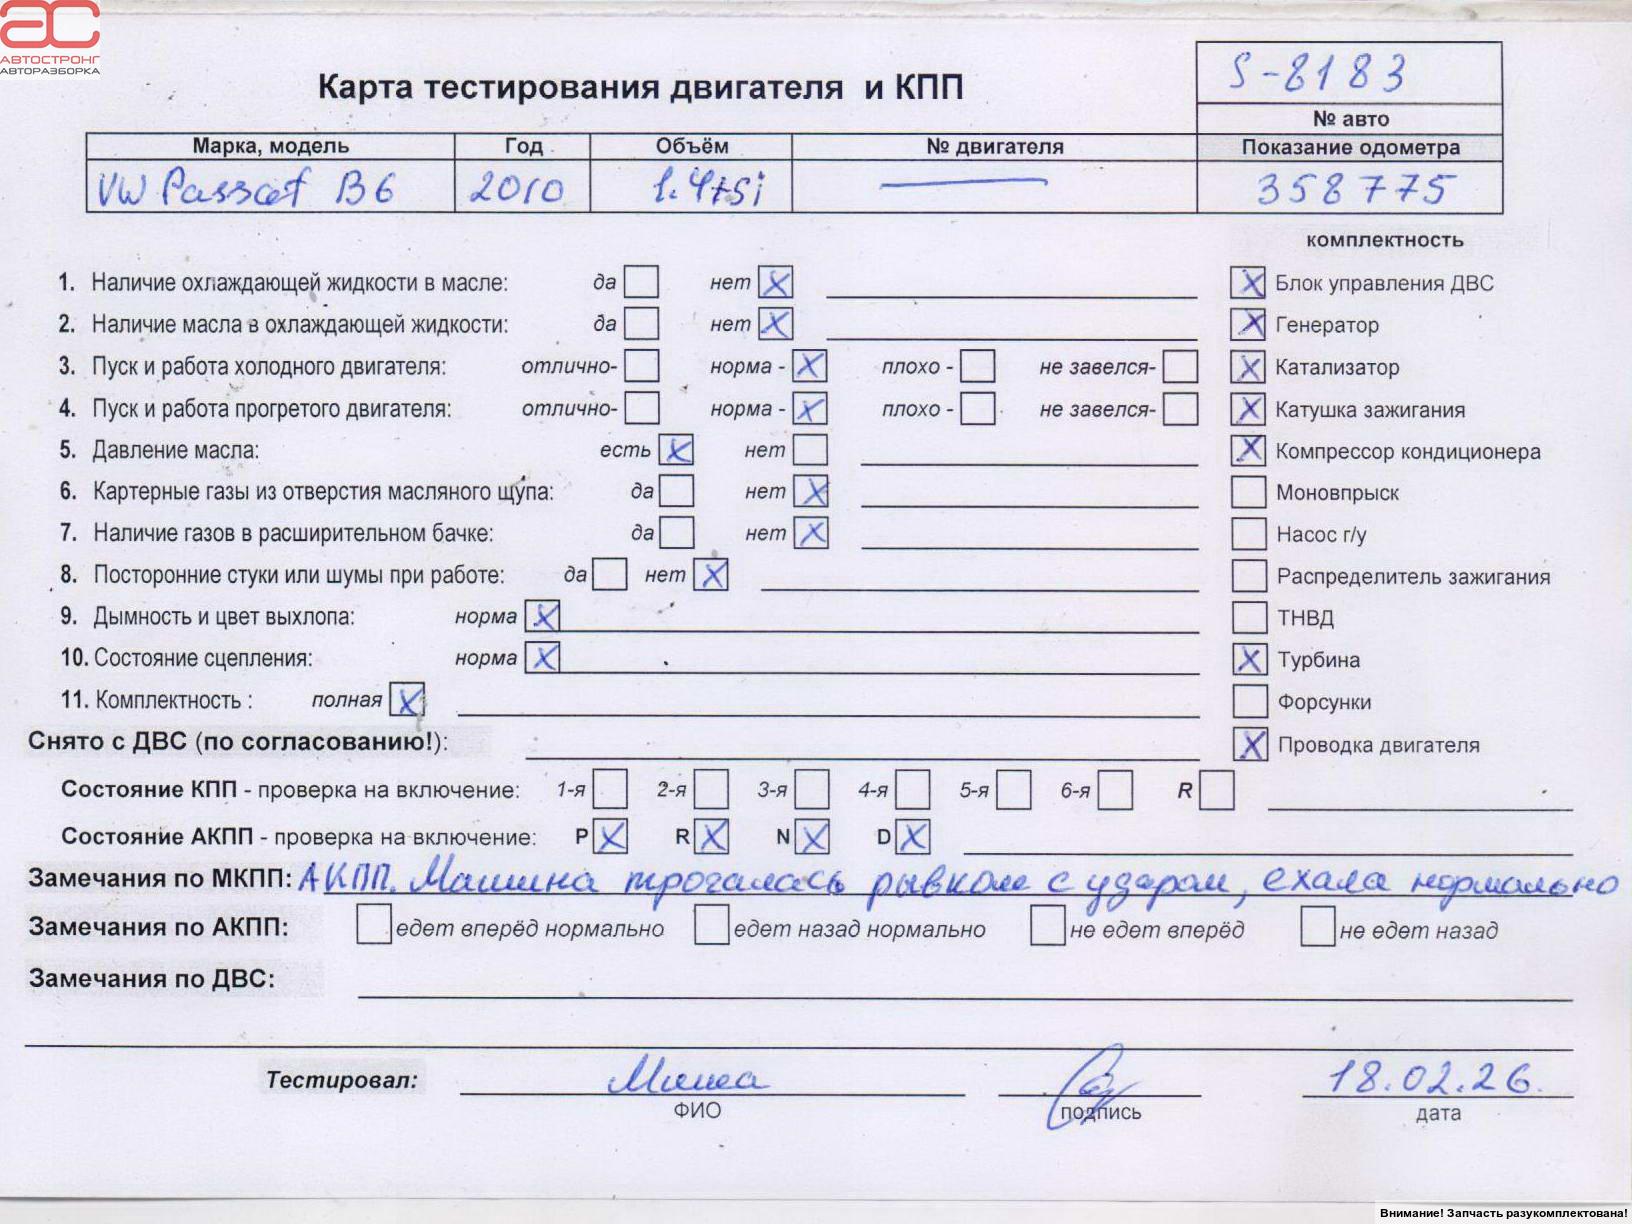 АВТОСТРОНГ
АВТОРАЗБОРКА
Карта тестирования двигателя и КПП
S-8183
№ авто
Марка, модель Год Объём № двигателя Показание одометра
VW Passat B6 2010 1.4tsi — 358775
комплектность
1. Наличие охлаждающей жидкости в масле: да нет X
Блок управления ДВС X
2. Наличие масла в охлаждающей жидкости: да нет X
Генератор X
3. Пуск и работа холодного двигателя: отлично- норма - X плохо - не завелся-
Катализатор X
4. Пуск и работа прогретого двигателя: отлично- норма - X плохо - не завелся-
Катушка зажигания X
5. Давление масла: есть X нет
Компрессор кондиционера X
6. Картерные газы из отверстия масляного щупа: да нет X
Моновпрыск
7. Наличие газов в расширительном бачке: да нет X
Насос г/у
8. Посторонние стуки или шумы при работе: да нет X
Распределитель зажигания
9. Дымность и цвет выхлопа: норма X
ТНВД
10. Состояние сцепления: норма X
Турбина X
11. Комплектность : полная X
Форсунки
Снято с ДВС (по согласованию!):
Проводка двигателя X
Состояние КПП - проверка на включение: 1-я 2-я 3-я 4-я 5-я 6-я R
Состояние АКПП - проверка на включение: P X R X N X D X
Замечания по МКПП: АКПП. Машина трогалась рывком с ударом, ехала нормально
Замечания по АКПП: едет вперёд нормально едет назад нормально не едет вперёд не едет назад
Замечания по ДВС:
Тестировал: Миша 18.02.26.
ФИО подпись дата
Внимание! Запчасть разукомплектована!